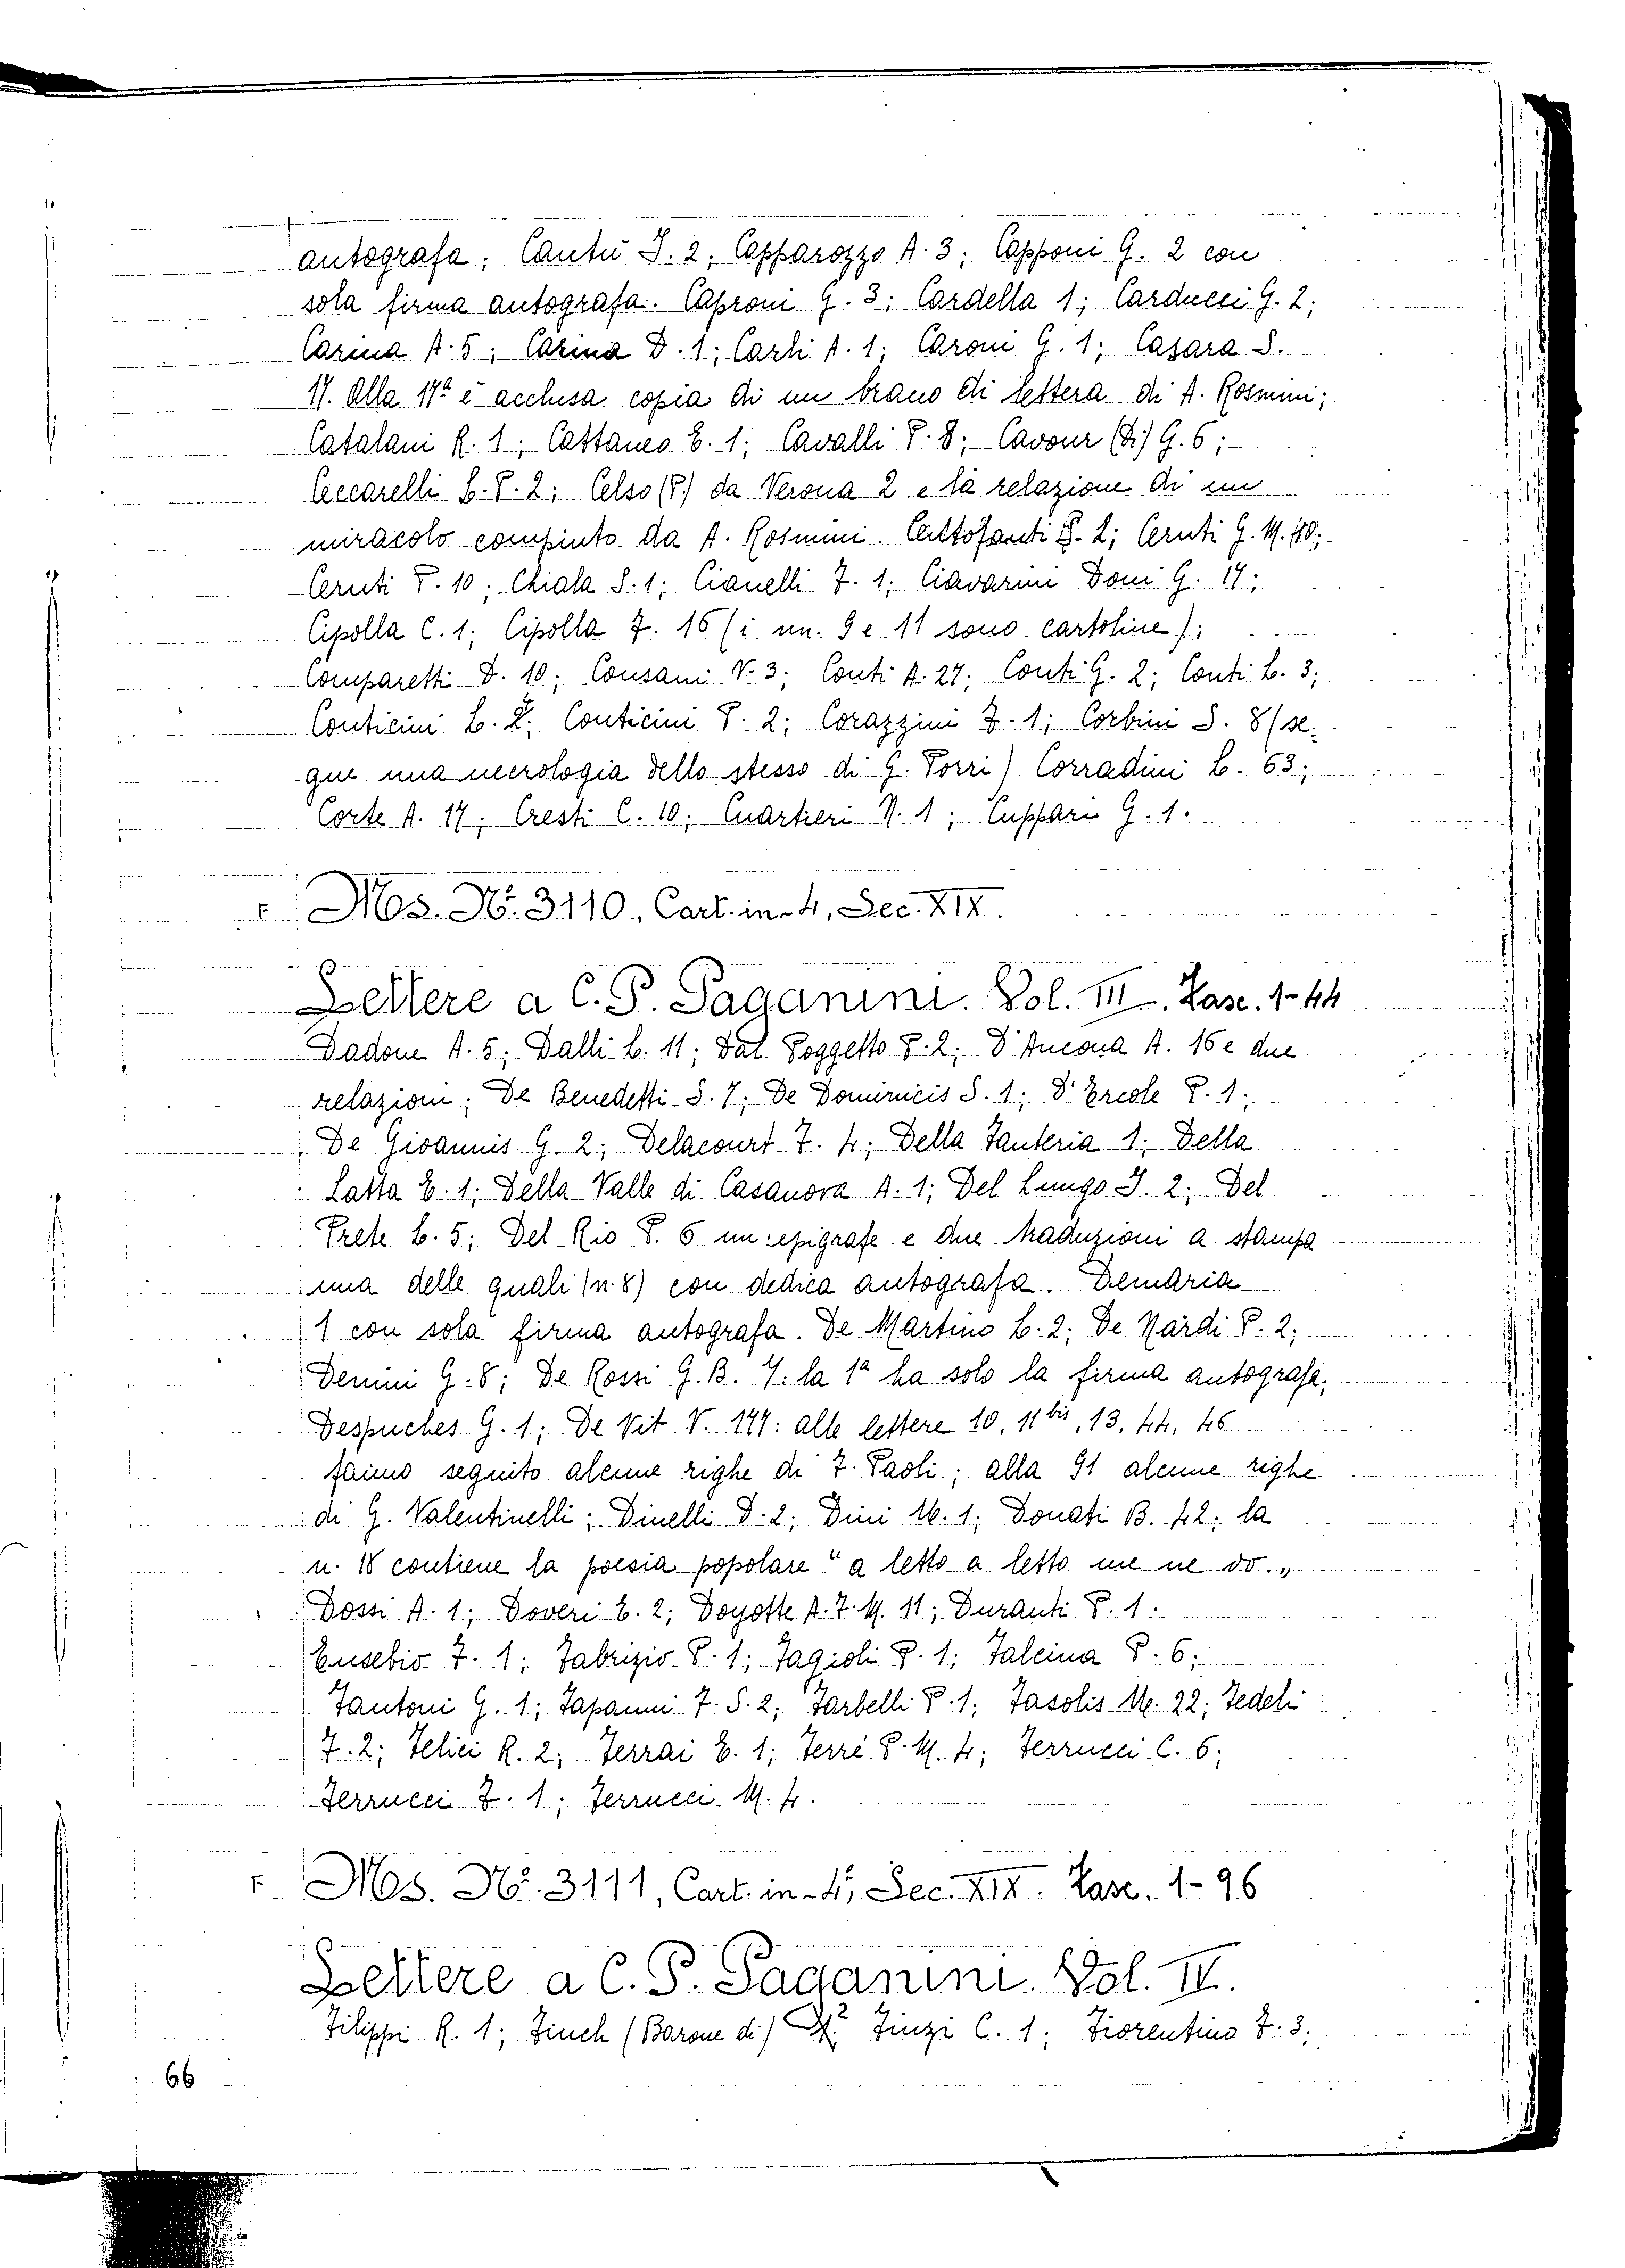 autografa; Cantù I. 2; Capparozzo A. 3; Capponi G. 2 con
sola firma autografa. Caproni G. 3; Cardella 1; Carducci G. 2;
Carina A. 5; Carina D. 1; Carli A. 1; Caroni G. 1; Casara S.
17. Alla 17ª è acclusa copia di un brano di lettera di A. Rosmini;
Catalani R. 1; Cattaneo E. 1; Cavalli P. 8; Cavour (di) G. 6;
Ceccarelli L. P. 2; Celso (P.) da Verona 2 e la relazione di un
miracolo compiuto da A. Rosmini. Centofanti S. 2; Ceruti G. M. 40;
Ceruti P. 10; Chiala S. 1; Cianelli F. 1; Ciavarini Doni G. 17;
Cipolla C. 1; Cipolla F. 16 (i nn. 9 e 11 sono cartoline);
Comparetti D. 10; Consani V. 3; Conti A. 27; Conti G. 2; Conti L. 3;
Conticini L. 2; Conticini P. 2; Corazzini F. 1; Corbini S. 8 (se-
gue una necrologia dello stesso di G. Porri) Corradini L. 63;
Corte A. 17; Cresti C. 10; Cuartieri N. 1; Cuppari G. 1.
F Mos. Nº. 3110, Cart. in-4, Sec. XIX.
Lettere a C. P. Paganini. Vol. III. Fasc. 1-44
Dadone A. 5; Dalli L. 11; Dal Poggetto P. 2; D'Ancona A. 16 e due
relazioni; De Benedetti S. 7; De Dominicis S. 1; D'Ercole P. 1;
De Gioannis G. 2; Delacourt F. 4; Della Fanteria 1; Della
Latta E. 1; Della Valle di Casanova A. 1; Del Lungo I. 2; Del
Prete L. 5; Del Rio P. 6 un epigrafe e due traduzioni a stampa
una delle quali (n. 8) con dedica autografa. Demaria
1 con sola firma autografa. De Martino L. 2; De Nardi P. 2;
Denini G. 8; De Rossi G. B. 7. la 1ª ha solo la firma autografa;
Despuches G. 1; De Vit V. 147: alle lettere 10, 11 bis, 13, 44, 46
fanno seguito alcune righe di F. Paoli; alla 91 alcune righe
di G. Valentinelli; Dinelli D. 2; Dini M. 1; Donati B. 42; la
n. 18 contiene la poesia popolare "a letto a letto me ne vo."
Dossi A. 1; Doveri E. 2; Doyotte A. F. M. 11; Duranti P. 1.
Eusebio F. 1; Fabrizio P. 1; Fagioli P. 1; Falcina P. 6;
Fantoni G. 1; Fapanni F. S. 2; Farbelli P. 1; Fasolis M. 22; Fedeli
F. 2; Felici R. 2; Ferrai E. 1; Ferré P. M. 4; Ferrucci C. 6;
Ferrucci F. 1; Ferrucci M. 4.
F Mos. Nº. 3111, Cart. in-4, Sec. XIX. Fasc. 1-96
Lettere a C. P. Paganini. Vol. IV.
Filippi R. 1; Finch (Barone di) Finzi C. 1; Fiorentino F. 3;
66